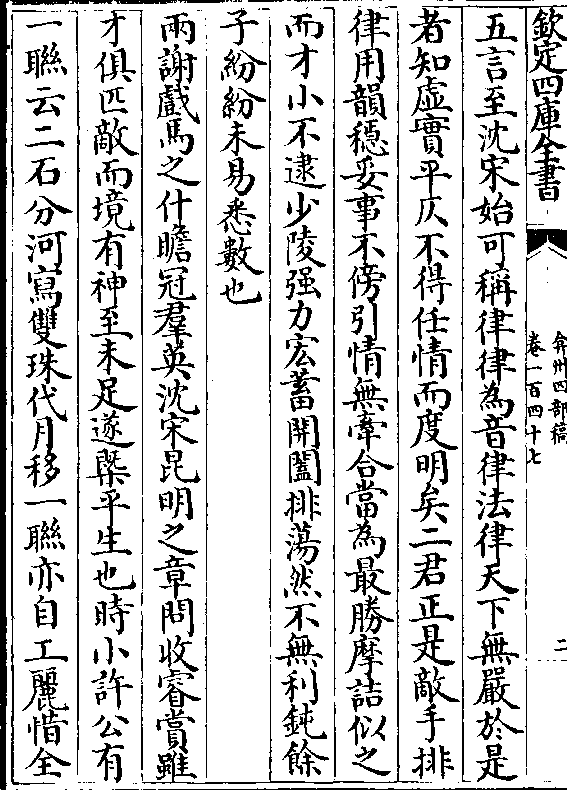 欽定四庫全書
弇州四部稿
卷一百四十七
二
五言至沈宋始可稱律律為音律法律天下無嚴於是
者知虛實平仄不得任情而度明矣二君正是敵手排
律用韻穩妥事不傍引情無牽合當為最勝摩詰似之
而才小不逮少陵强力宏蓄開闔排蕩然不無利鈍餘
子紛紛未易悉數也
兩謝戲馬之什瞻冠羣英沈宋昆明之章問收睿賞雖
才俱匹敵而境有神至未足遂槩平生也時小許公有
一聯云二石分河寫雙珠代月移一聯亦自工麗惜全